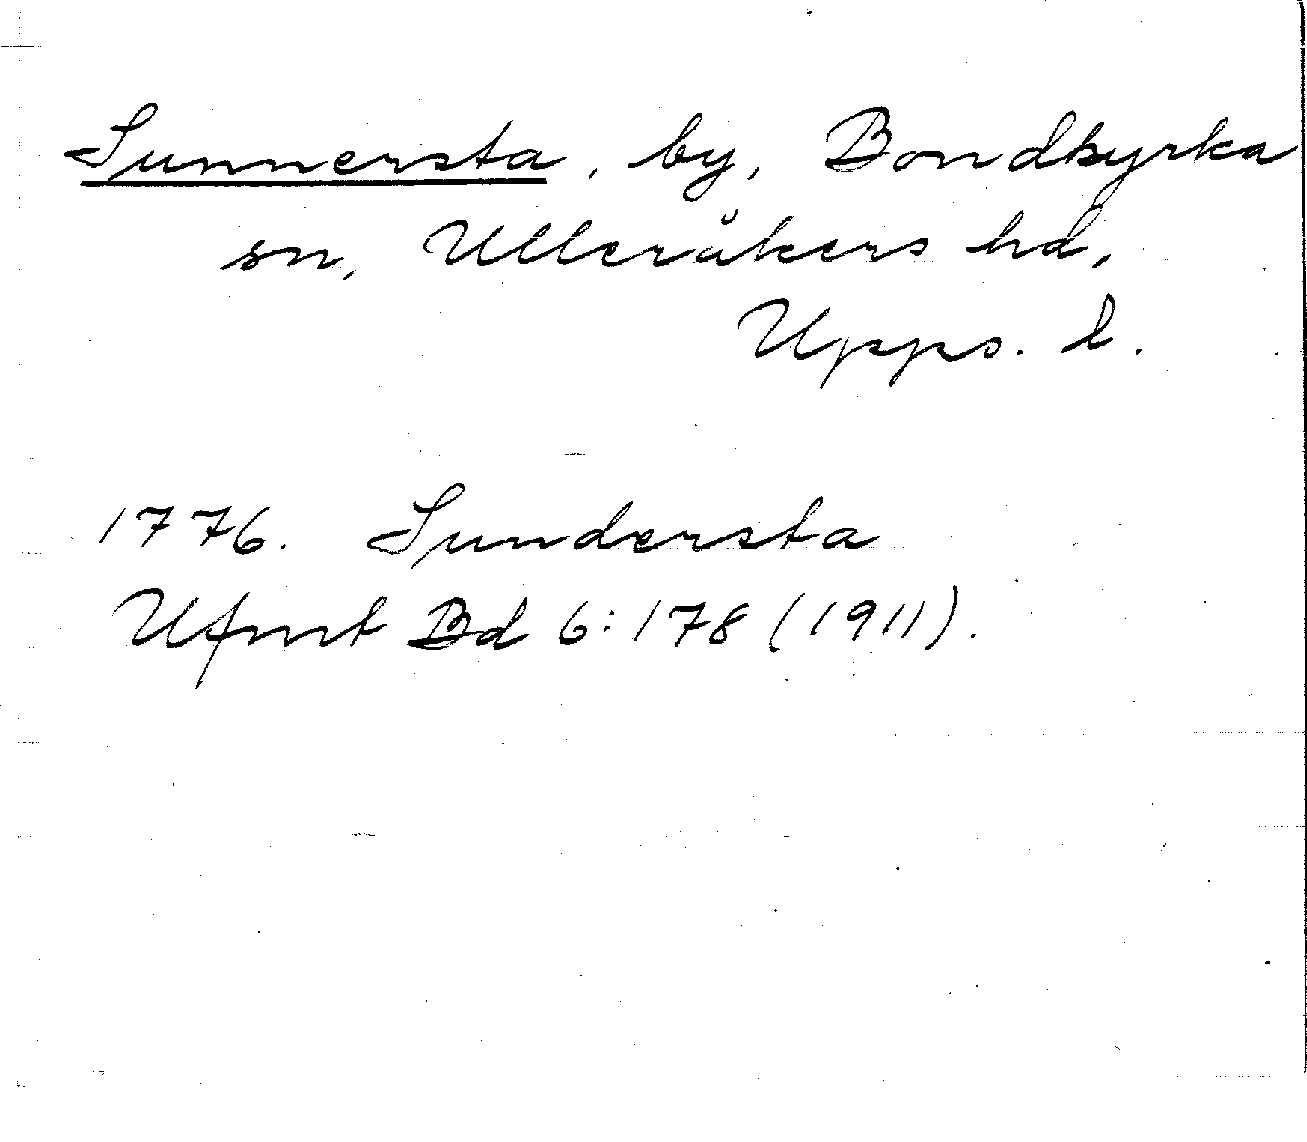 Sunnersta, by, Bondkyrka
sn, Ulleråkers hd,
Upps. l.
1776. Sundersta
Ufmt Bd 6:178 (1911).